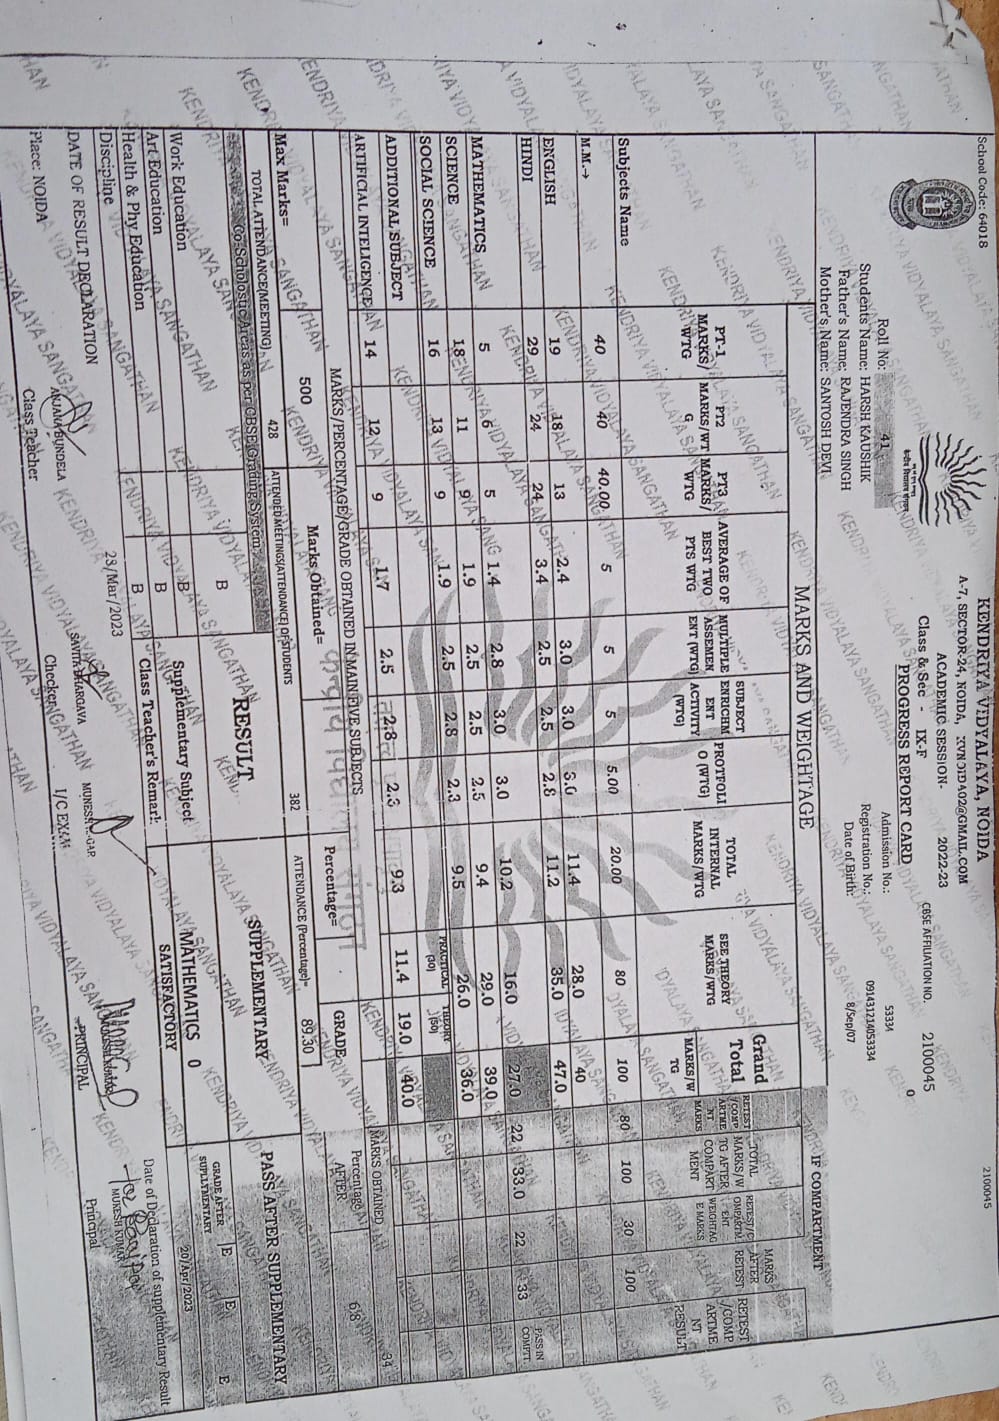 School Code: 64018
2100045
KENDRIYA VIDYALAYA, NOIDA
A-7, SECTOR-24, NOIDA, KVNOIDA02@GMAIL.COM
ACADEMIC SESSION- 2022-23
CBSE AFFILIATION NO. 2100045
Class & Sec - IX-F
0
PROGRESS REPORT CARD
केन्द्रीय विद्यालय संगठन
Roll No: 41
Admission No.: 53334
Students Name: HARSH KAUSHIK
Registration No.: 091431214053334
Father's Name: RAJENDRA SINGH
Date of Birth: 8/Sep/07
Mother's Name: SANTOSH DEVI
MARKS AND WEIGHTAGE
IF COMPARTMENT
Subjects Name
PT-1 MARKS/ WTG
PT2 MARKS/WT G
PT3 MARKS/ WTG
AVERAGE OF BEST TWO PTS WTG
MULTIPLE ASSEMEN ENT (WTG)
SUBJECT ENRICHM ENT ACTIVITY (WTG)
PROTFOLI O (WTG)
TOTAL INTERNAL MARKS/WTG
SEE THEORY MARKS/WTG
Grand Total MARKS/W TG
RETEST /COMP ARTME NT MARKS
TOTAL MARKS/W TG AFTER COMPART MENT
RETEST/C OMPARTM ENT WEIGHTAG E MARKS
MARKS AFTER RETEST
RETEST /COMP ARTME NT RESULT
M.M.→ 40 40 40.00 5 5 5 5.00 20.00 80 100 80 100 30 100
ENGLISH 19 18 13 2.4 3.0 3.0 3.0 11.4 28.0 40
HINDI 29 24 24 3.4 2.5 2.5 2.8 11.2 35.0 47.0
MATHEMATICS 5 6 5 1.4 2.8 3.0 3.0 10.2 16.0 27.0 22 33.0 22 33 PASS IN COMPTT
SCIENCE 18 11 9 1.9 2.5 2.5 2.5 9.4 29.0 39.0
SOCIAL SCIENCE 16 13 9 1.9 2.5 2.8 2.3 9.5 26.0 36.0
ADDITIONAL SUBJECT PRACTICAL (50) THEORY (50)
ARTIFICIAL INTELIGENCE 14 12 9 1.7 2.5 2.8 2.3 9.3 11.4 19.0 40.0
MARKS/PERCENTAGE/GRADE OBTAINED IN MAIN FIVE SUBJECTS
MARKS OBTAINED
34
Max Marks= 500 Marks Obtained= Percentage= GRADE- Percentage AFTER 68
TOTAL ATTENDANCE(MEETING) 428 ATTENDED MEETINGS(ATTENDANCE) OF STUDENTS 382 ATTENDANCE (Percentage)= 89.30
Co-Scholostic Areas as per CBSE Grading System
RESULT SUPPLEMENTARY PASS AFTER SUPPLEMENTARY
Work Education B
Supplementary Subject MATHEMATICS 0
GRADE AFTER SUPLLYMENTARY E E E
Art Education B B
Health & Phy Education B B
Class Teacher's Remark: SATISFACTORY
20/Apr/2023
Discipline
Date of Declaration of supplementary Result
DATE OF RESULT DECLARATION 23/Mar/2023
ANJANA BUNDELA
SAVITA BHARGAVA
MUKESH KUMAR
Place: NOIDA
Class Teacher
Checker
I/C EXAM
PRINCIPAL
Principal
केन्द्रीय विद्यालय संगठन
KENDRIYA VIDYALAYA SANGATHAN